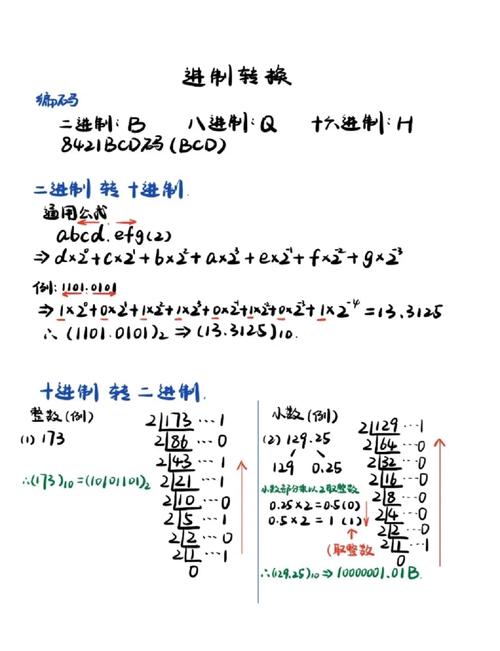 进制转换
编码
二进制：B 八进制：Q 十六进制：H
8421BCD码(BCD)
二进制 转 十进制.
通用公式
abcd.efg(2)
⇒ d×2⁰+c×2¹+b×2²+a×2³+e×2⁻¹+f×2⁻²+g×2⁻³
例：1101.0101
⇒ 1×2⁰+0×2¹+1×2²+1×2³+0×2⁻¹+1×2⁻²+0×2⁻³+1×2⁻⁴=13.3125
∴ (1101.0101)₂ ⇒ (13.3125)₁₀.
十进制 转 二进制.
整数(例)
(1) 173
2|173 ··· 1
2|86 ··· 0
2|43 ··· 1
2|21 ··· 1
2|10 ··· 0
2|5 ··· 1
2|2 ··· 0
2|1 ··· 1
0
∴(173)₁₀=(10101101)₂
小数(例)
(2) 129.25
129 0.25
小数部分乘以2取整数
0.25×2=0.5(0)
0.5×2=1 (1)
(取整数
2|129 ··· 1
2|64 ··· 0
2|32 ··· 0
2|16 ··· 0
2|8 ··· 0
2|4 ··· 0
2|2 ··· 0
2|1 ··· 1
0
∴(129.25)₁₀ ⇒ 10000001.01B.